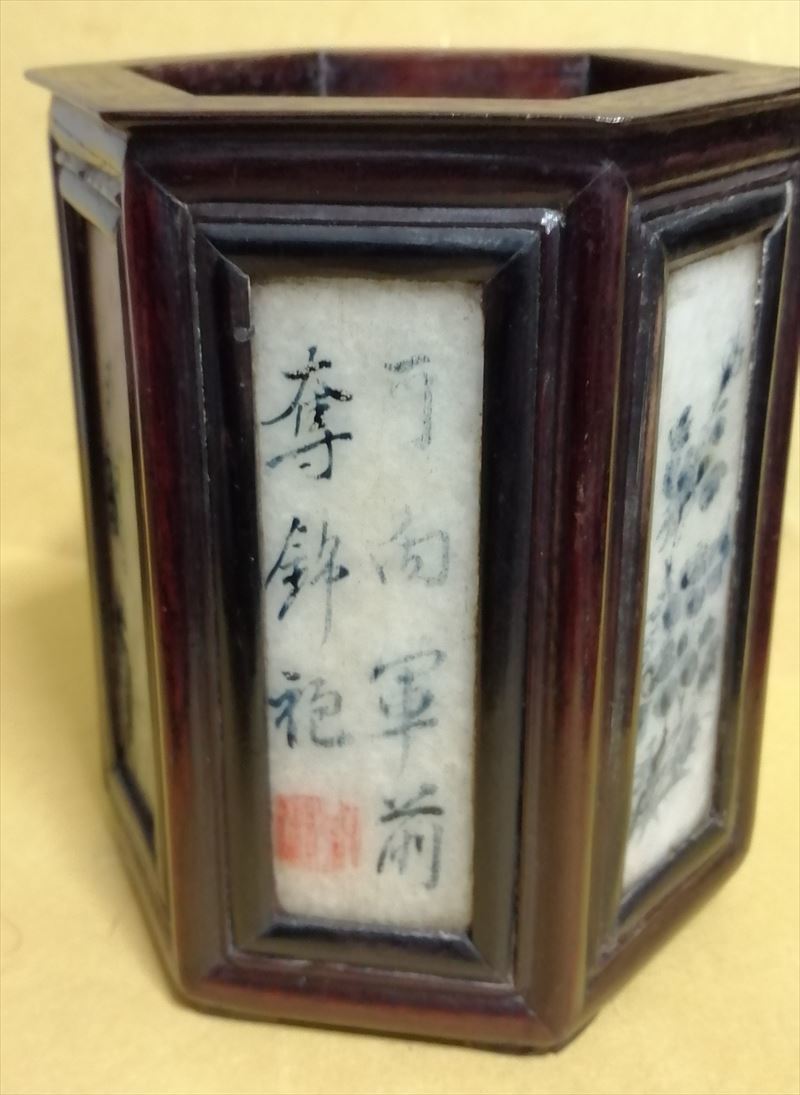 可向軍前
奪錦袍